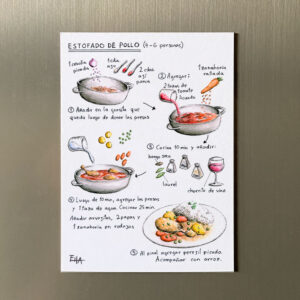 ESTOFADO DE POLLO (4-6 personas)
1 cebolla
picada
1 cda
ajo
2 cdas
ají
panca
① Añadir en la grasita que
queda luego de dorar las presas
② Agregar:
2 tazas de
tomate
licuado
1 zanahoria
rallada
③ Cocinar 10 min y añadir:
hongo seco
laurel
chorrito de vino
④ Luego de 10 min, agregar las presas
y 1 taza de agua. Cocinar 25 min.
Añadir arvejitas, 2 papas y
1 zanahoria en rodajas
⑤ Al final agregar perejil picado.
Acompañar con arroz.